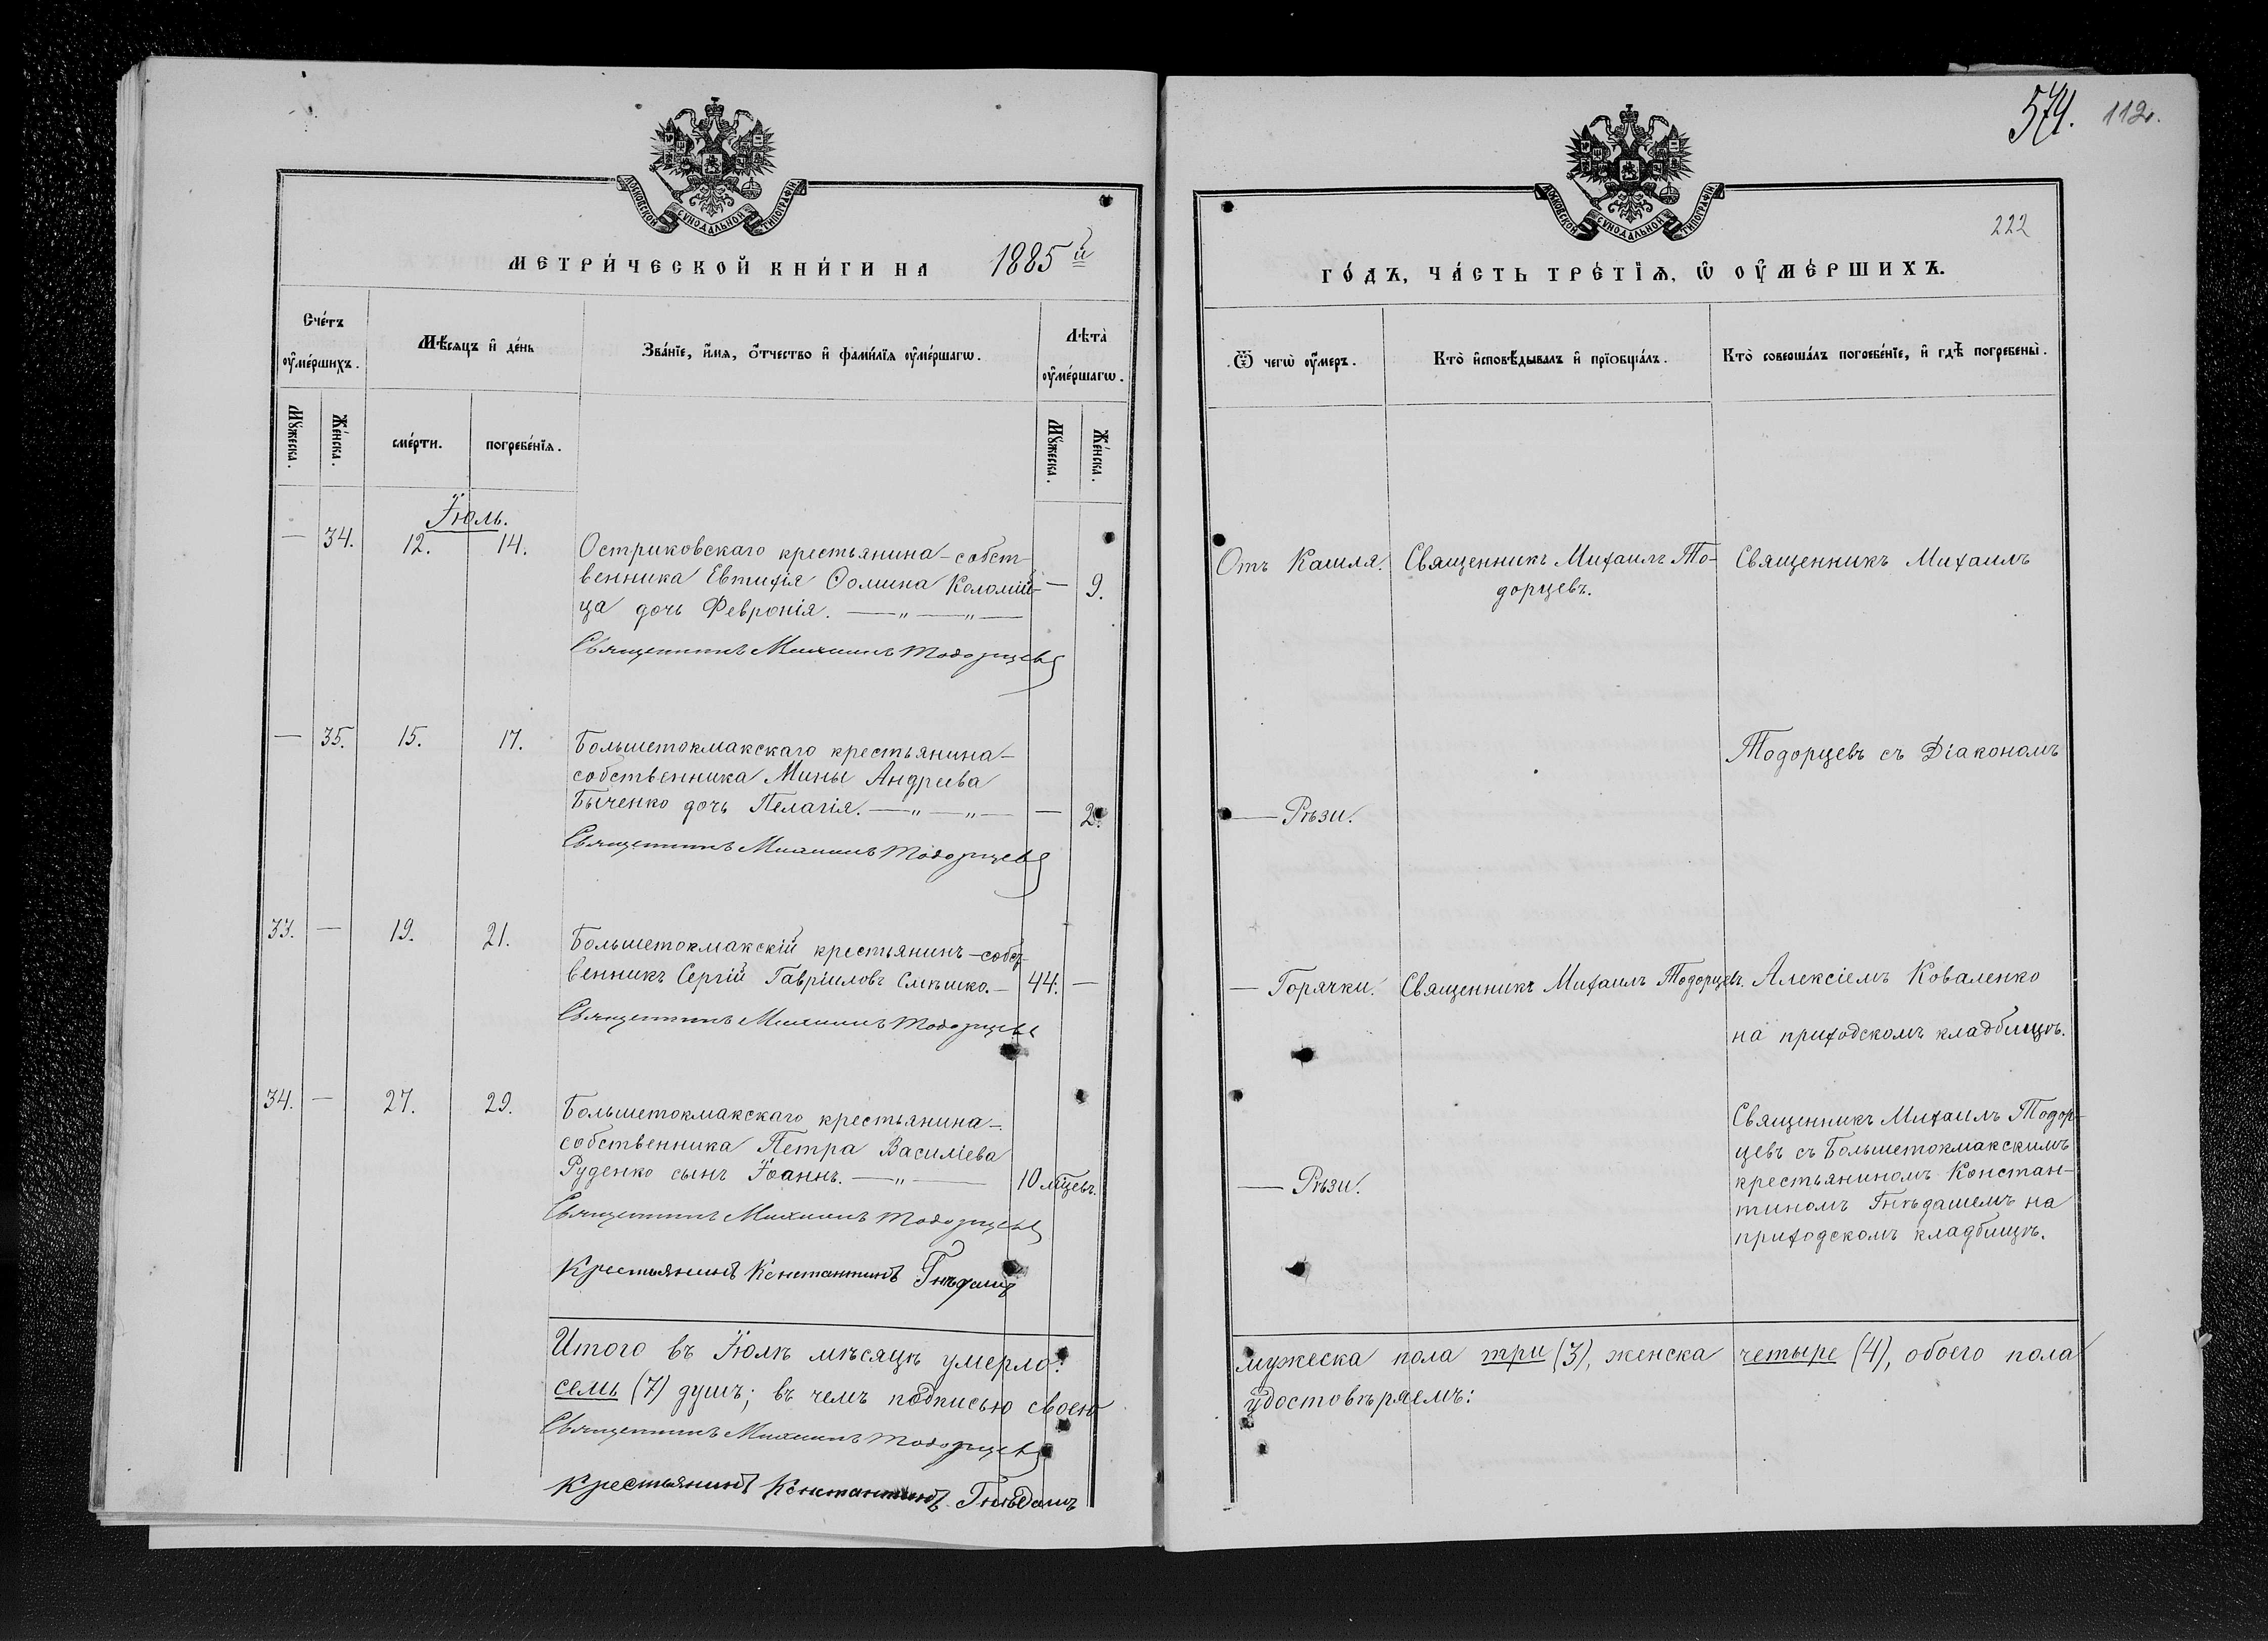 574. 112.
МОСКОВСКОЙ СѴНОДАЛЬНОЙ ТИПОГРАФІИ
МЕТРИ́ЧЕСКОЙ КНИ́ГИ НА 1885й
Сче́тъ ᲂу҆ме́ршихъ.
Мѣ́сяцъ и҆ де́нь
Зва́нїе, и҆́мя, ѻ҆́тчество и҆ фами́лїя ᲂу҆ме́ршагѡ.
Лѣта̀ ᲂу҆ме́ршагѡ.
Мꙋ́жеска. Же́нска.
сме́рти. погребе́нїя.
Мꙋ́жеска. Же́нска.
Іюль.
— 34. 12. 14. Остриковскаго крестьянина-собст-
венника Евтихія Ѳомина Коломій- — 9.
ца дочь Февронія. — „ — „ —
Священникъ Михаилъ Тодорцевъ
— 35. 15. 17. Большетокмакскаго крестьянина-
собственника Мины Андреева
Быченко дочь Пелагія. — „ — „ — — 2.
Священникъ Михаилъ Тодорцевъ
33. — 19. 21. Большетокмакскій крестьянинъ-собст-
венникъ Сергій Гавріиловъ Смѣшко. — 44. —
Священникъ Михаилъ Тодорцевъ
34. — 27. 29. Большетокмакскаго крестьянина-
собственника Петра Василіева
Руденко сынъ Іоаннъ. — „ — 10 мѣцевъ.
Священникъ Михаилъ Тодорцевъ
Крестьянинъ Константинъ Гнѣдашъ
Итого въ Іюлѣ мѣсяцѣ умерло:
семь (7) душъ; въ чемъ подписью своею
Священникъ Михаилъ Тодорцевъ
Крестьянинъ Константинъ Гнѣдашъ
МОСКОВСКОЙ СѴНОДАЛЬНОЙ ТИПОГРАФІИ
222
ГО́ДЪ, ЧА́СТЬ ТРЕ́ТЇѦ, Ѡ҆ ОУ҆МЕ́РШИХЪ.
Ѿ чегѡ̀ ᲂу҆́меръ.
Кто̀ и҆сповѣ́дывалъ и҆ прїѡбща́лъ.
Кто̀ соверша́лъ погребе́нїе, и҆ гдѣ̀ погребены̀.
Отъ Кашля. Священникъ Михаилъ То- Священникъ Михаилъ
дорцевъ.
Тодорцевъ съ Діакономъ
— Рѣзи.
— Горячки. Священникъ Михаилъ Тодорцевъ. Алексіемъ Коваленко
на приходскомъ кладбищѣ.
Священникъ Михаилъ Тодор-
цевъ съ Большетокмакскимъ
— Рѣзи. крестьяниномъ Констан-
тиномъ Гнѣдашемъ на
приходскомъ кладбищѣ.
мужеска пола три (3), женска четыре (4), обоего пола
удостовѣряемъ: